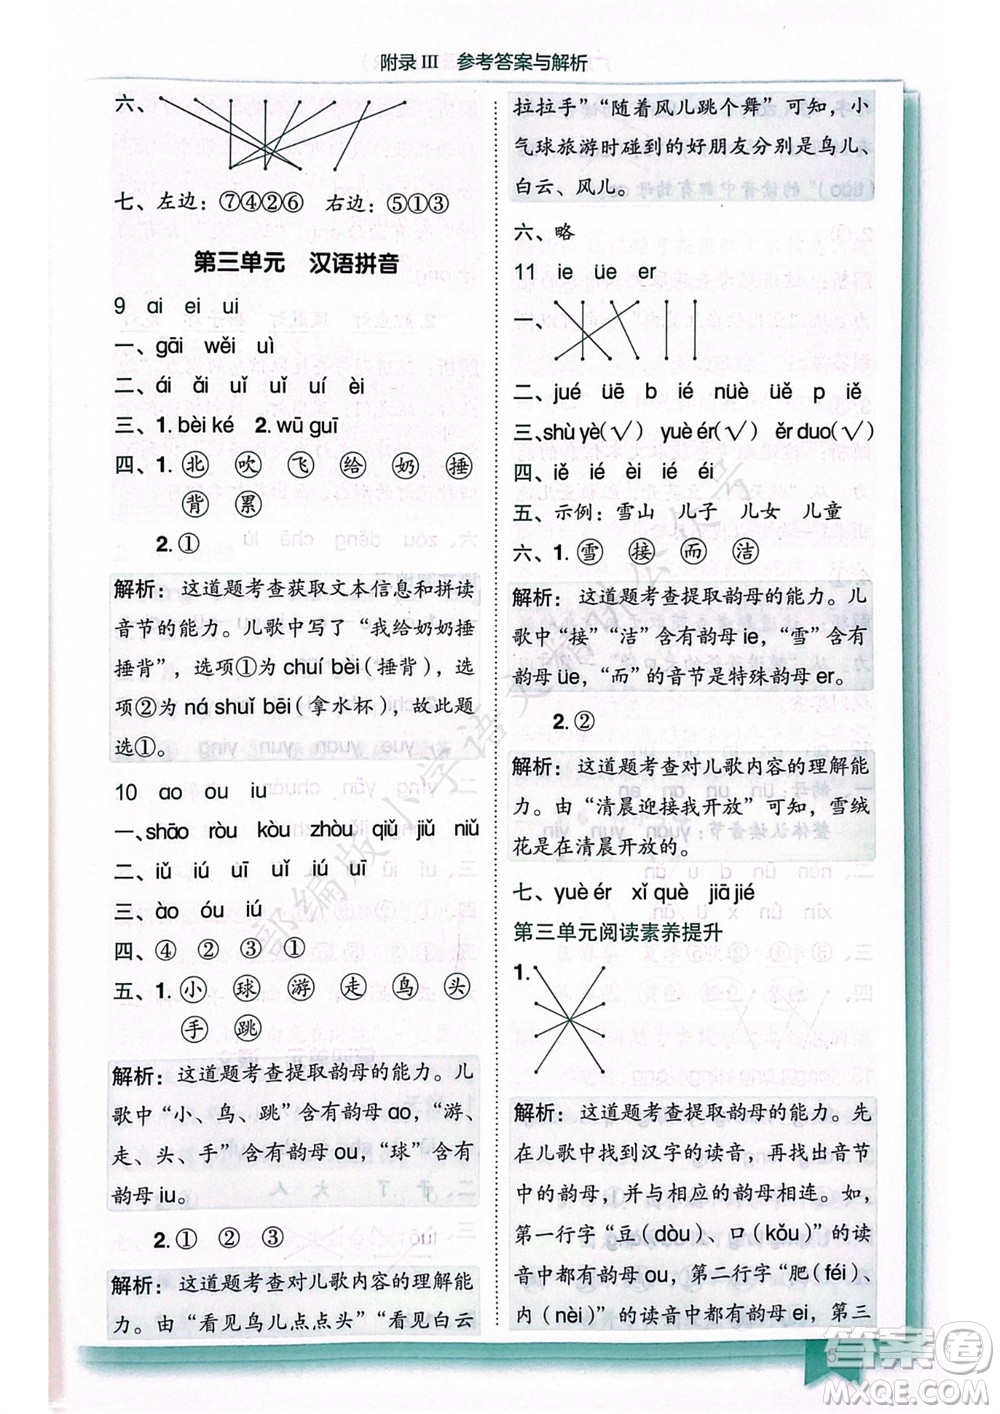 附录 III 参考答案与解析
六、
七、左边：⑦④②⑥ 右边：⑤①③
第三单元 汉语拼音
9 ai ei ui
一、gāi wěi uì
二、ái ǎi uǐ uǐ uí èi
三、1. bèi ké 2. wū guī
四、1. 北 吹 飞 给 奶 捶
背 累
2. ①
解析：这道题考查获取文本信息和拼读
音节的能力。儿歌中写了“我给奶奶捶
捶背”，选项①为 chuí bèi（捶背），选
项②为 ná shuǐ bēi（拿水杯），故此题
选①。
10 ao ou iu
一、shāo ròu kòu zhòu qiǔ jiǔ niǔ
二、iǔ iú uī uǐ iǔ uí
三、ào óu iú
四、④ ② ③ ①
五、1. 小 球 游 走 鸟 头
手 跳
解析：这道题考查提取韵母的能力。儿
歌中“小、鸟、跳”含有韵母 ao，“游、
走、头、手”含有韵母 ou，“球”含有
韵母 iu。
2. ① ② ③
解析：这道题考查对儿歌内容的理解能
力。由“看见鸟儿点点头”“看见白云
拉拉手”“随着风儿跳个舞”可知，小
气球旅游时碰到的好朋友分别是鸟儿、
白云、风儿。
六、略
11 ie üe er
一、
二、jué üē b ié nüè üě p iě
三、shù yè(√) yuè ér(√) ěr duo(√)
四、iě ié èi ié éi
五、示例：雪山 儿子 儿女 儿童
六、1. 雪 接 而 洁
解析：这道题考查提取韵母的能力。
儿歌中“接”“洁”含有韵母 ie，“雪”含有
韵母 üe，“而”的音节是特殊韵母 er。
2. ②
解析：这道题考查对儿歌的理解能
力。由“清晨迎接我开放”可知，雪绒
花是在清晨开放的。
七、yuè ér xǐ què jiā jié
第三单元阅读素养提升
1.
解析：这道题考查提取韵母的能力。先
在儿歌中找到汉字的读音，再找出音节
中的韵母，并与相应的韵母相连。如，
第一行字“豆（dòu）、口（kǒu）”的读
音中都有韵母 ou，第二行字“肥（féi）、
内（nèi）”的读音中都有韵母 ei，第三
5
部编版小学语文精讲公众号
答案圈
MXQE.COM